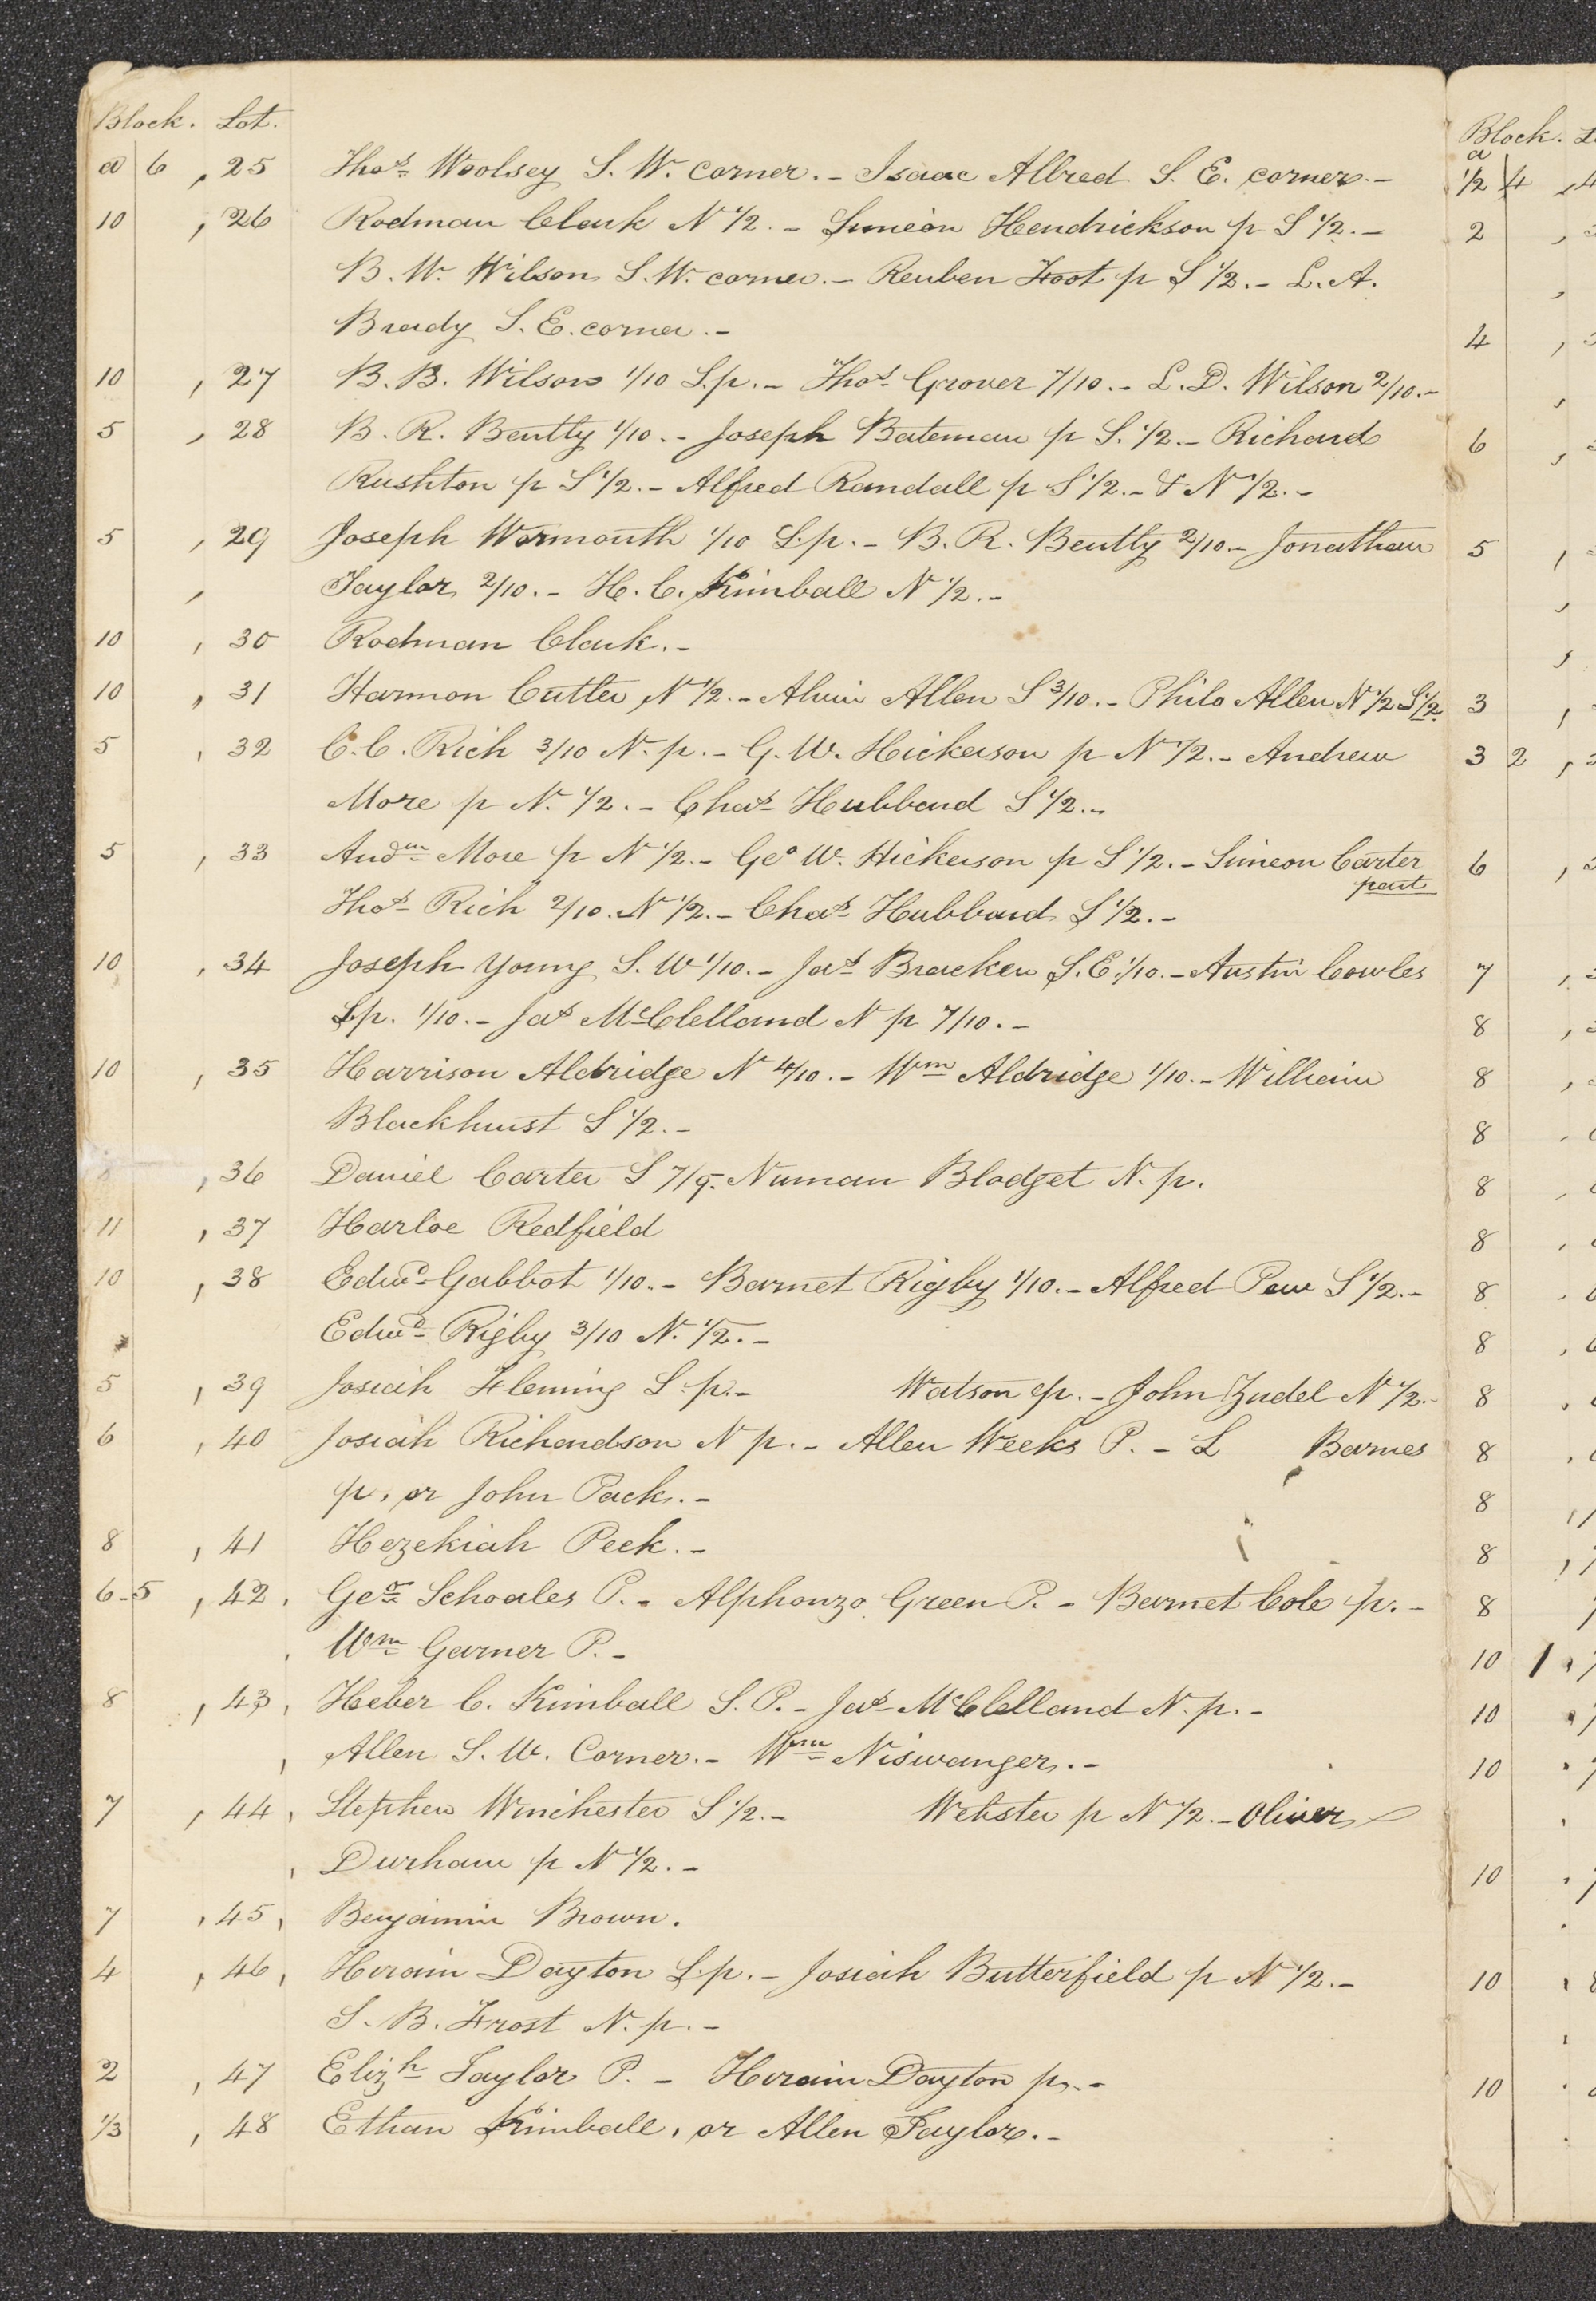 Block. Lot.
a 6 , 25 Thos Woolsey S. W. corner. - Isaac Allred S. E. corner. -
10 , 26 Rodman Clark N 1/2. - Simeon Hendrickson p S 1/2. -
B. W. Wilson S. W. corner. - Reuben Foot p S 1/2. - L. A.
Brady S. E. corner. -
10 , 27 B. B. Wilson 1/10 S. p. - Thos Grover 7/10. - L. D. Wilson 2/10. -
5 , 28 B. R. Bentty 1/10. - Joseph Bateman p S. 1/2. - Richard
Rushton p S 1/2. - Alfred Randall p S 1/2. - & N 1/2. -
5 , 29 Joseph Wormouth 1/10 S. p. - B. R. Bentty 2/10. - Jonathan
, Taylor 2/10. - H. C. Kimball N 1/2. -
10 , 30 Rodman Clark. -
10 , 31 Harmon Cutler N 1/2. - Alvin Allen S 3/10. - Philo Allen N 1/2 S 1/2.
5 , 32 C. C. Rich 3/10 N. p. - G. W. Hickerson p N 1/2. - Andrew
More p N. 1/2. - Chas Hubbard S 1/2. -
5 , 33 Andm More p N 1/2. - Geo W. Hickerson p S 1/2. - Simeon Carter
part
Thos Rich 2/10. N 1/2. - Chas Hubbard S 1/2. -
10 , 34 Joseph Young S. W 1/10. - Jas Bracken S. E 1/10. - Austin Cowles
S. p. 1/10. - Jas McClelland N p 7/10. -
10 , 35 Harrison Aldridge N 4/10. - Wm Aldridge 1/10. - William
Blackhurst S 1/2. -
, 36 Daniel Carter S 7/9. Numan Blodget N. p.
11 , 37 Harloe Redfield
10 , 38 Edwd Gabbot 1/10. - Barnet Rigby 1/10. - Alfred Pew S 1/2. -
Edwd Rigby 3/10 N. 1/2. -
5 , 39 Josiah Fleming S. p. - Watson p. - John Zudel N 1/2. -
6 , 40 Josiah Richardson N p. - Allen Weeks P. - L Barnes
p, or John Pack. -
8 , 41 Hezekiah Peck. -
6-5 , 42 , Geo Schoales P. - Alphonzo Green P. - Barnet Cole p. -
, Wm Garner P. -
8 , 43 , Heber C. Kimball S. P. - Jas McClelland N. p. -
, Allen S. W. Corner. - Wm Niswanger. -
7 , 44 , Stephen Winchester S 1/2. - Webster p N 1/2. - Oliver
, Durham p N 1/2. -
7 , 45 , Benjamin Brown.
4 , 46 , Hiram Dayton S. p. - Josiah Butterfield p N 1/2. -
S. B. Frost N. p. -
2 , 47 Elizh Taylor P. - Hiram Dayton p. -
1/3 , 48 Ethan Kimball, or Allen Taylor. -
Block.
a
1/2 4
2
4
6
5
3
3 2
6
7
8
8
8
8
8
8
8
8
8
8
8
8
10 1
10
10
10
10
10